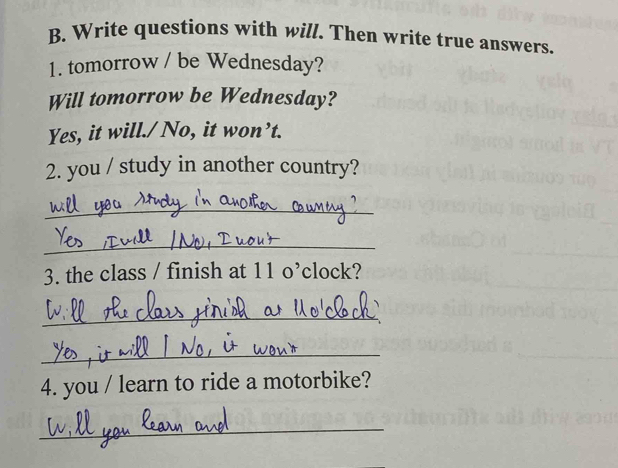 B. Write questions with will. Then write true answers.
1. tomorrow / be Wednesday?
Will tomorrow be Wednesday?
Yes, it will./ No, it won't.
2. you / study in another country?
will you study in another country?
Yes, I will / No, I won't
3. the class / finish at 11 o'clock?
Will the class finish at 11 o'clock?
Yes, it will / No, it won't
4. you / learn to ride a motorbike?
Will you learn and